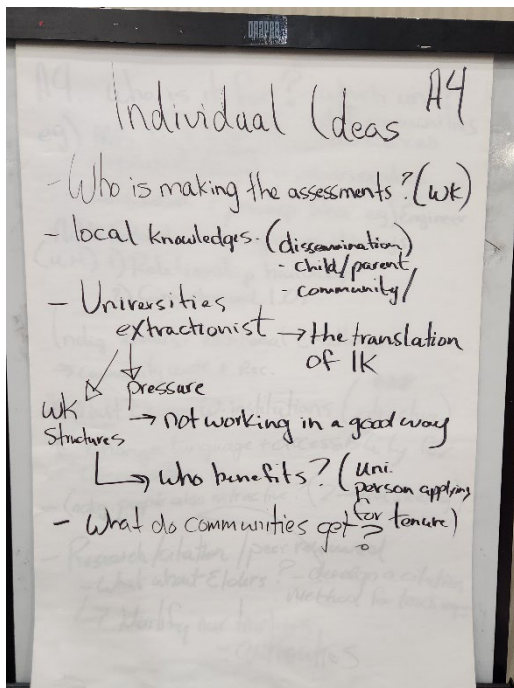 DRAPER
A4
Individual Ideas
- Who is making the assessments? (WK)
- local knowledges. (dissemination)
- child/parent
- community/
- Universities
extractionist → the translation
of IK
pressure
WK
Structures
→ not working in a good way
→ who benefits? (uni.
person applying
for tenure)
- What do communities get?